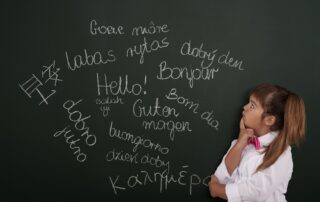 Goeie môre
labas rytas
dobrý den
早安
Hello!
Bonjour
sabah
iyi
Guten
morgen
Bom dia
dobro
jutro
buongiorno
dzień dobry
Καλημέρα